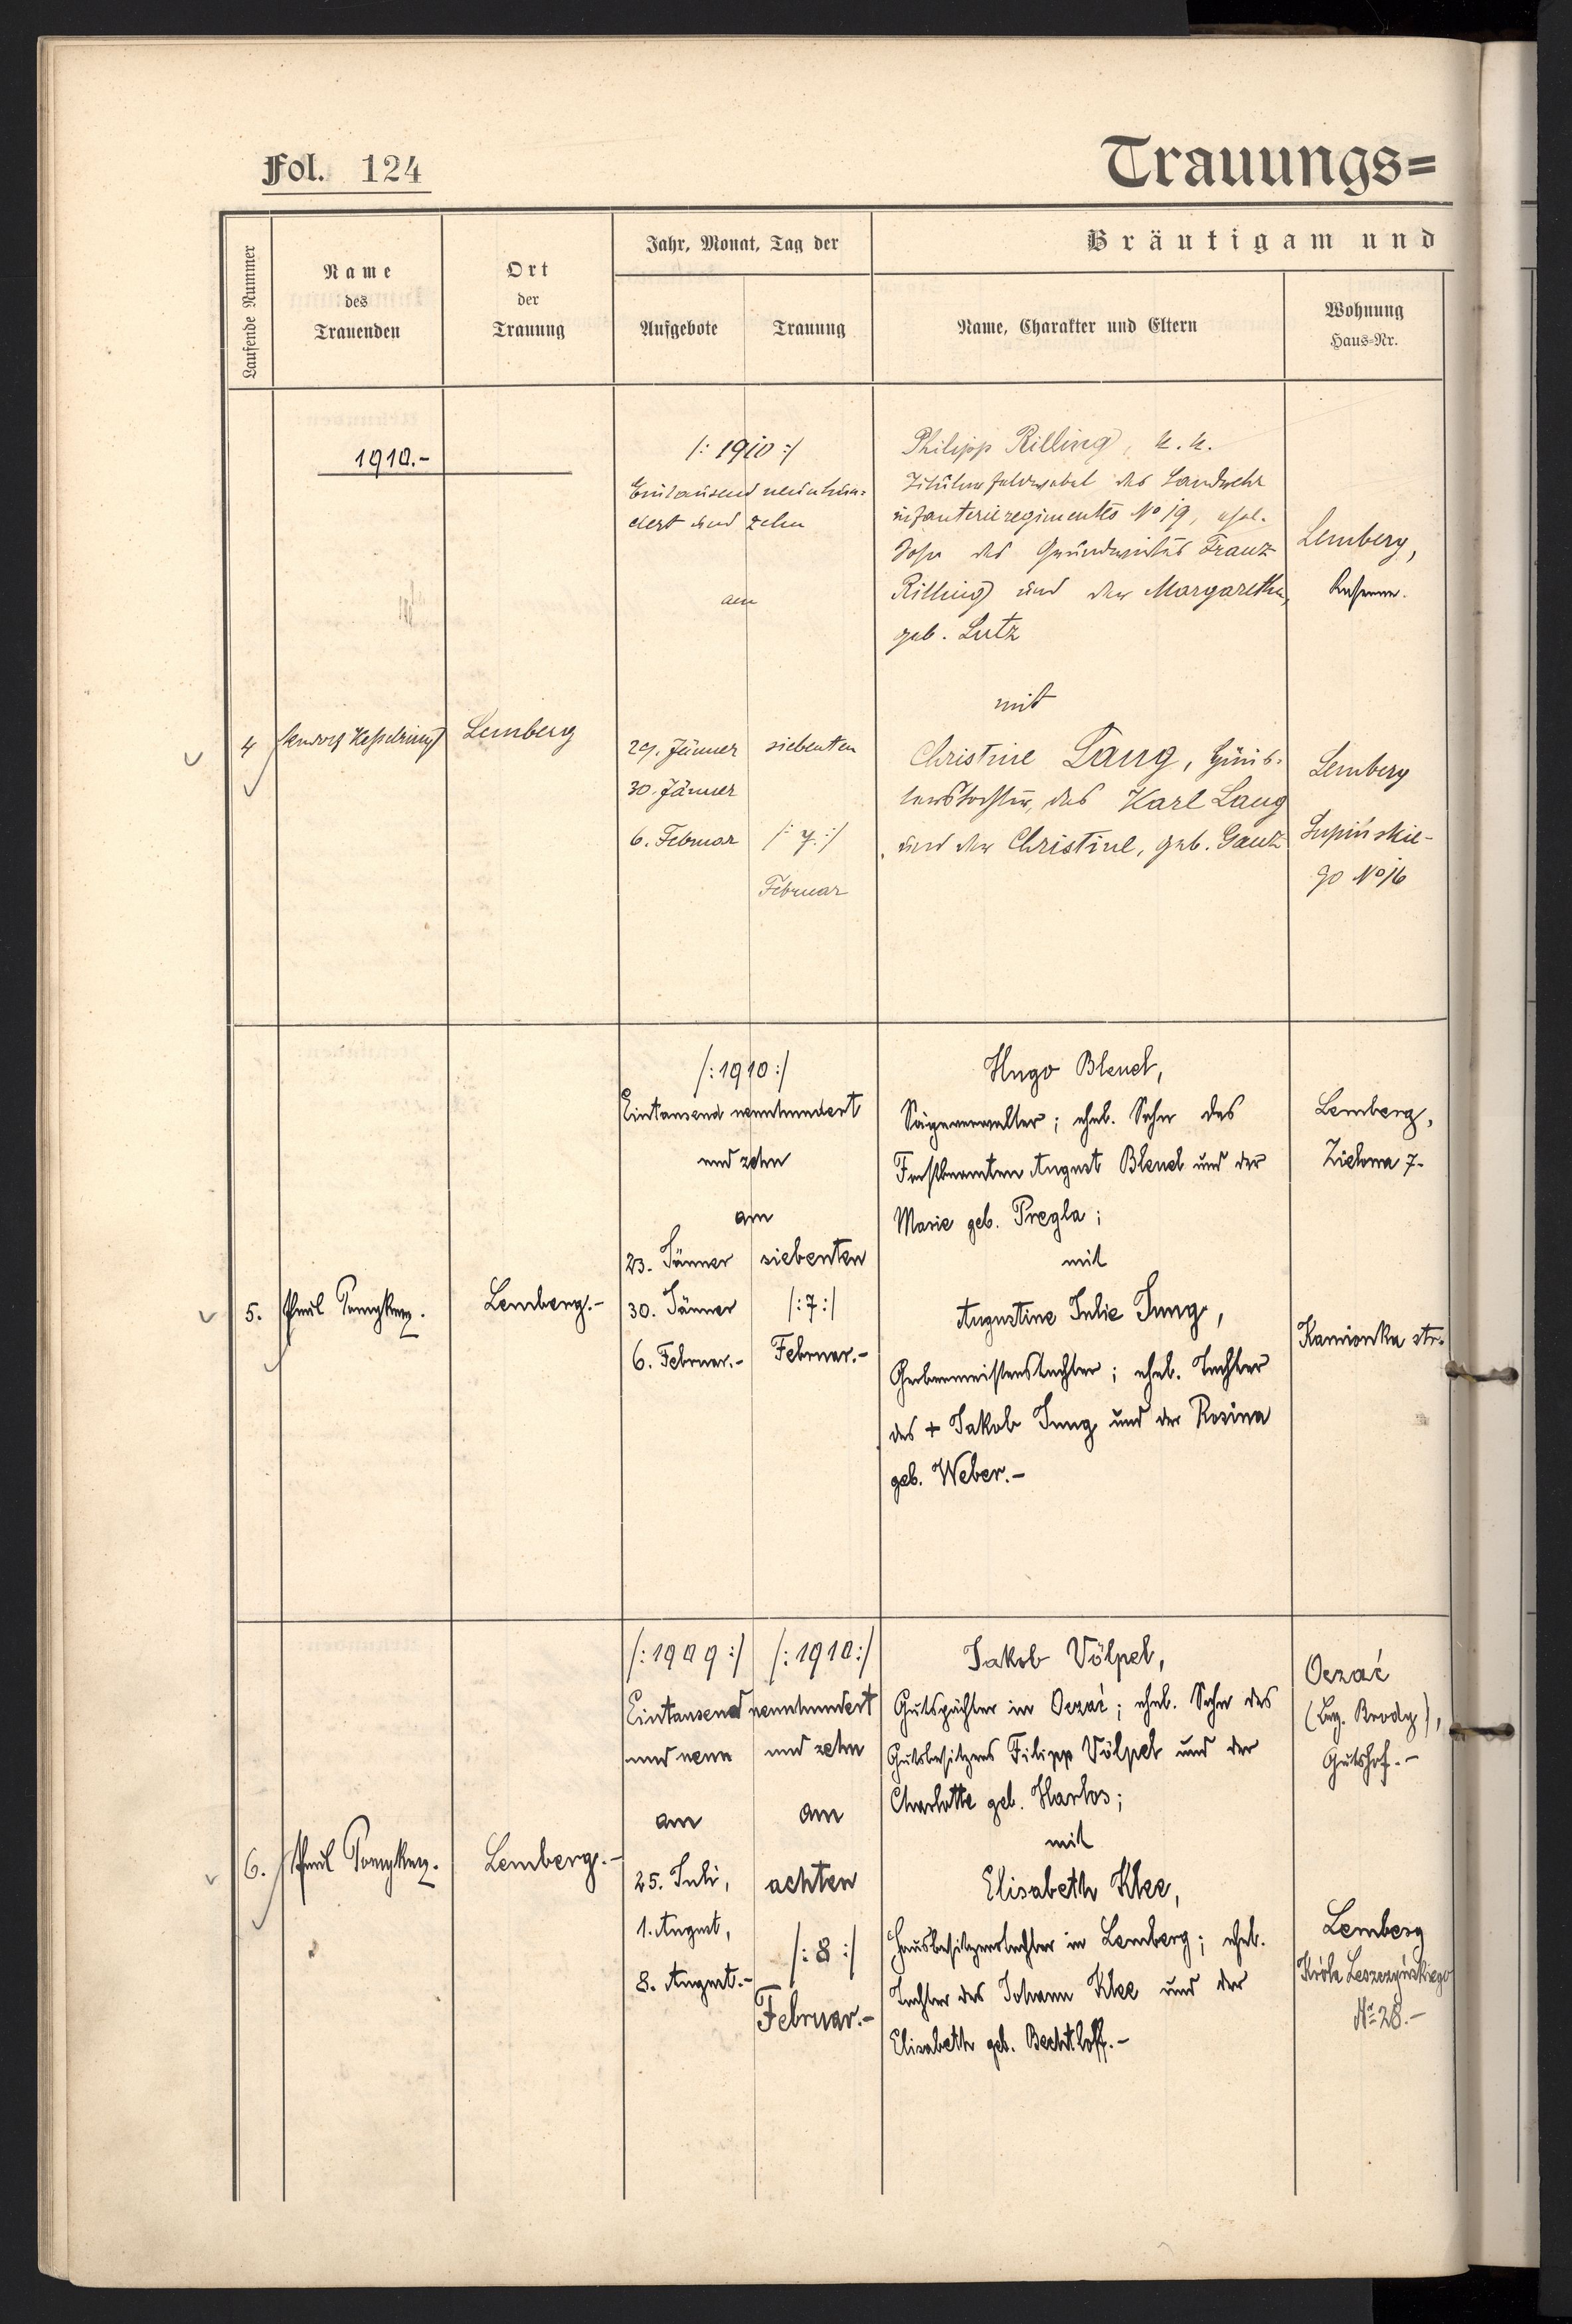 Fol. 124
Trauungs=
Laufende Nummer
Name
des
Trauenden
Ort
der
Trauung
Jahr, Monat, Tag der
Aufgebote
Trauung
Bräutigam und
Name, Charakter und Eltern
Wohnung
Haus-Nr.
1910.-
/: 1910 :/
Eintausend neunhun-
dert und zehn
am
Philipp Rilling, k. k.
Titularfeldwebel des Landwehr
infanterieregimentes No 19, ehel.
Sohn des Grundwirtes Franz
Rilling und der Margaretha,
geb. Lutz
Lemberg,
Kaserne.
mit
4
Kesselring
Lemberg
29. Jänner
30. Jänner
6. Februar
siebenten
/: 7 :/
Februar
Christine Lang,
des Karl Lang
und der Christine, geb. Gautz
Lemberg
Lupińskie-
go No 16
/: 1910 :/
Eintausend neunhundert
und zehn
am
23. Jänner
30. Jänner
6. Februar.-
siebenten
/: 7 :/
Februar.-
5.
Paul
Lemberg.-
Hugo Bleuel,
Sägeverwalter; ehel. Sohn des
Forstbeamten August Bleuel und der
Marie geb. Pregla;
mit
Augustine Julie Jung,
Gerbermeisterstochter; ehel. Tochter
des + Jakob Jung und der Rosina
geb. Weber.-
Lemberg,
Zielona 7.
Kamionka str.
/: 1909 :/
/: 1910 :/
Eintausend neunhundert
und neun
und zehn
am
am
25. Juli,
1. August,
8. August.-
achten
/: 8 :/
Februar.-
6.
Paul
Lemberg.-
Jakob Völpel,
Gutspächter in Oczać; ehel. Sohn des
Gutsbesitzers Filipp Völpel und der
Charlotte geb. Harlos;
mit
Elisabeth Klee,
Hausbesitzerstochter in Lemberg; ehel.
Tochter des Johann Klee und der
Elisabeth geb. Bechtloff.-
Oczać
(Bez. Brody),
Gutshof.-
Lemberg
Króla Leszczyńskiego
No 28.-